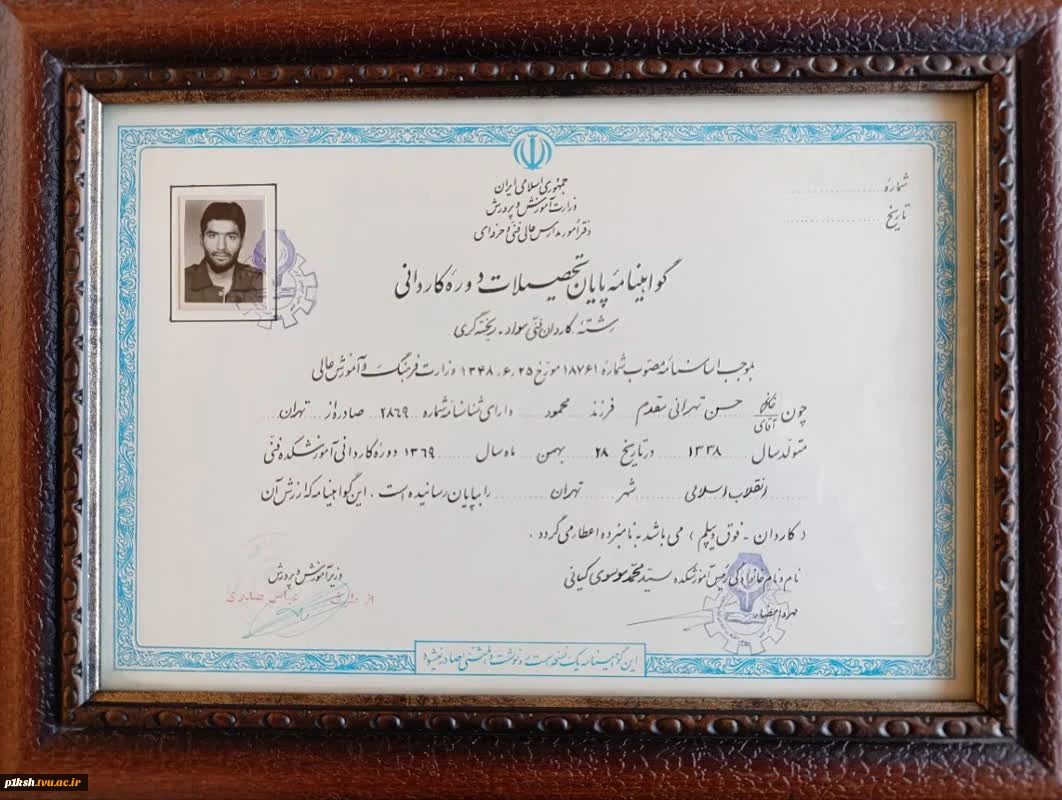 شماره
تاریخ
جمهوری اسلامی ایران
وزارت آموزش و پرورش
دفتر امور مدارس عالی فنی و حرفه‌ای
گواهینامه پایان تحصیلات دوره کاردانی
رشته کاردان فنی مواد - ریخته گری
بموجب اساسنامه مصوب شماره ۱۸۷۶۱ مورخ ۱۳۴۸.۶.۲۵ وزارت فرهنگ و آموزش عالی
چون خانم آقای حسن تهرانی مقدم فرزند محمود دارای شناسنامه شماره ۲۸۶۹ صادره از تهران
متولد سال ۱۳۳۸ در تاریخ ۲۸ بهمن ماه سال ۱۳۶۹ دوره کاردانی آموزشکده فنی
انقلاب اسلامی شهر تهران را بپایان رسانیده است . این گواهینامه که ارزش آن
( کاردان - فوق دیپلم ) می باشد به نامبرده اعطا می گردد .
نام و نام خانوادگی رئیس آموزشکده سید محمد موسوی کیانی
مهر و امضاء
وزیر آموزش و پرورش
از طرف عباس صدری
این گواهینامه یک نسخه است و رونوشت یا المثنی صادر نمیشود
p1ksh.tvu.ac.ir